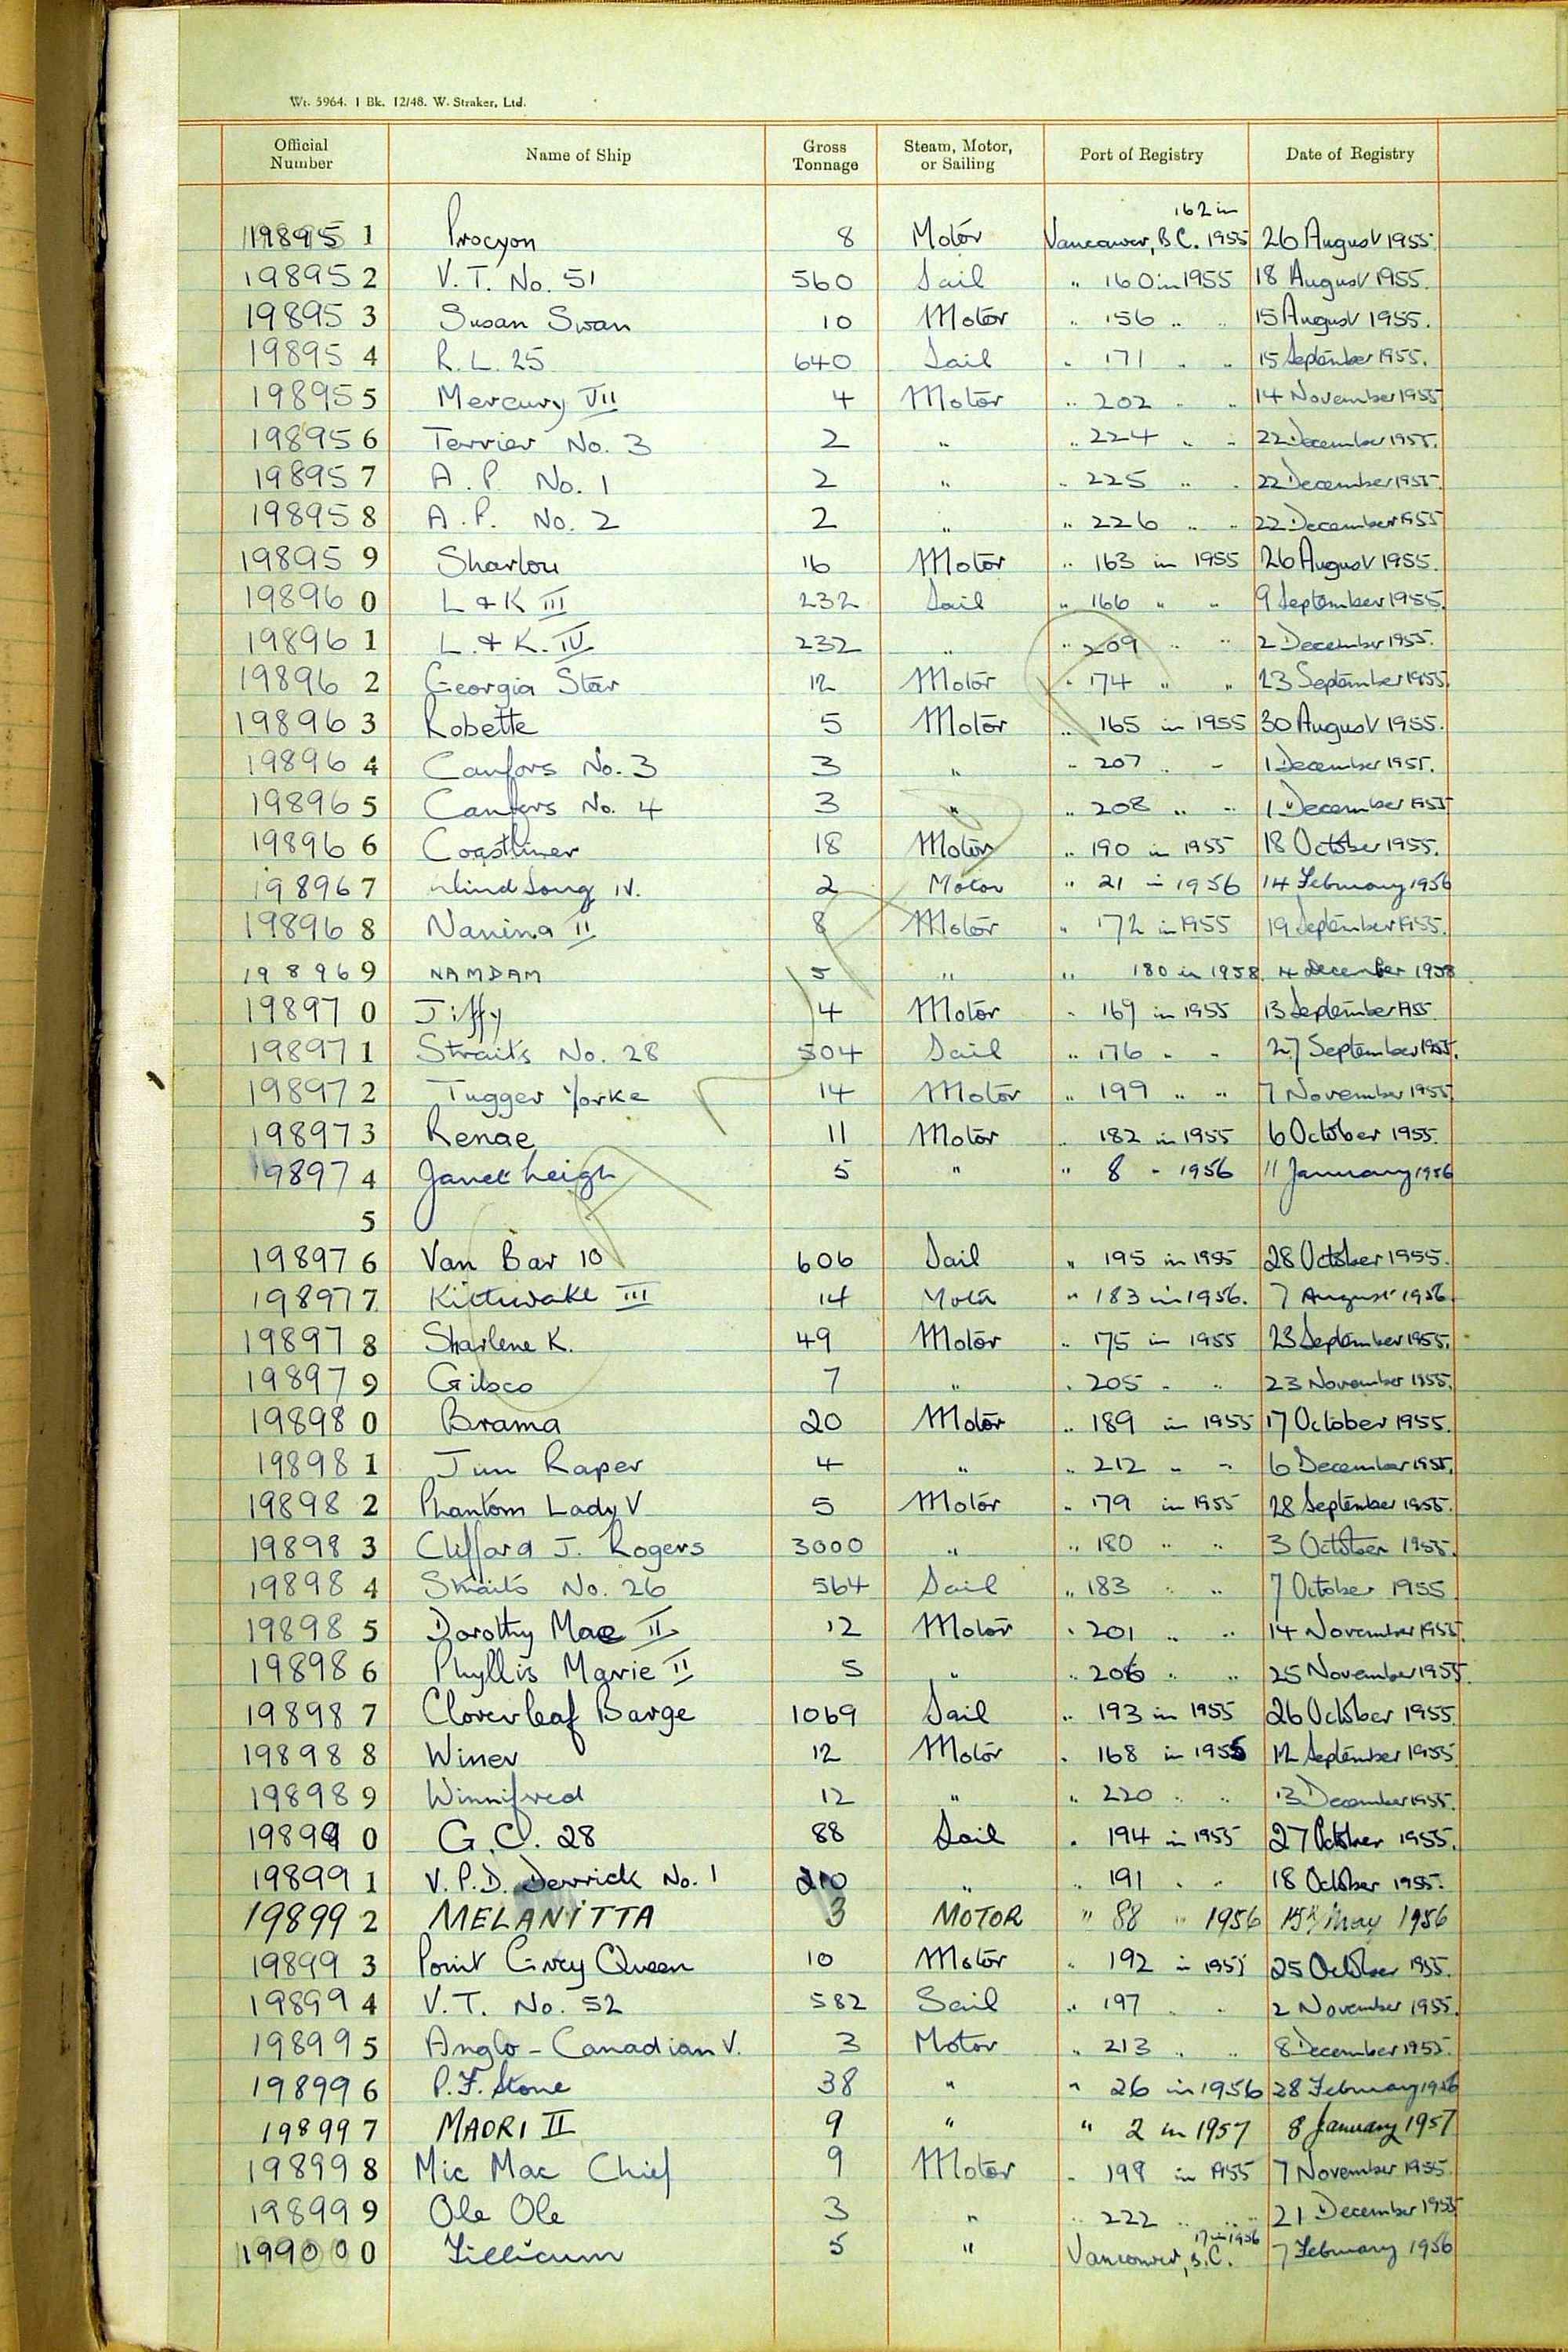 Wt. 5964. 1 Bk. 12/48. W. Straker, Ltd.
Official Number Name of Ship Gross Tonnage Steam, Motor, or Sailing Port of Registry Date of Registry
198951 Procyon 8 Motor Vancouver, B.C. 162 in 1955 26 August 1955.
198952 V. T. No. 51 560 Sail " 160 in 1955 18 August 1955.
198953 Susan Swan 10 Motor " 156 " " 15 August 1955.
198954 R. L. 25 640 Sail " 171 " " 15 September 1955.
198955 Mercury VII 4 Motor " 202 " " 14 November 1955
198956 Terrier No. 3 2 " " 224 " " 22 December 1955.
198957 A. P. No. 1 2 " " 225 " " 22 December 1955.
198958 A. P. No. 2 2 " " 226 " " 22 December 1955
198959 Sharlou 16 Motor " 163 in 1955 26 August 1955.
198960 L & K III 232 Sail " 166 " " 9 September 1955.
198961 L. & K. IV 232 " " 209 " " 2 December 1955.
198962 Georgia Star 12 Motor " 174 " " 23 September 1955.
198963 Robette 5 Motor " 165 in 1955 30 August 1955.
198964 Canfors No. 3 3 " " 207 " " 1 December 1955.
198965 Canfors No. 4 3 " " 208 " " 1 December 1955
198966 Coastliner 18 Motor " 190 in 1955 18 October 1955.
198967 Wind Song IV. 2 Motor " 21 in 1956 14 February 1956
198968 Nanina II 8 Motor " 172 in 1955 19 September 1955.
198969 NAMDAM 5 " " 180 in 1958. 4 December 1958
198970 Jiffy 4 Motor " 169 in 1955 13 September 1955.
198971 Straits No. 28 504 Sail " 176 " " 27 September 1955.
198972 Tugger Yorke 14 Motor " 199 " " 7 November 1955
198973 Renae 11 Motor " 182 in 1955 6 October 1955.
198974 Janet Leigh 5 " " 8 " 1956 11 January 1956
5
198976 Van Bar 10 606 Sail " 195 in 1955 28 October 1955.
198977 Kittiwake III 14 Motor " 183 in 1956. 7 August 1956.
198978 Sharlene K. 49 Motor " 175 in 1955 23 September 1955.
198979 Gibco 7 " " 205 " " 23 November 1955.
198980 Brama 20 Motor " 189 in 1955 17 October 1955.
198981 Jim Raper 4 " " 212 " " 6 December 1955.
198982 Phantom Lady V 5 Motor " 179 in 1955 28 September 1955.
198983 Clifford J. Rogers 3000 " " 180 " " 3 October 1955.
198984 Straits No. 26 564 Sail " 183 " " 7 October 1955
198985 Dorothy Mae II 12 Motor " 201 " " 14 November 1955.
198986 Phyllis Marie II 5 " " 206 " " 25 November 1955.
198987 Cloverleaf Barge 1069 Sail " 193 in 1955 26 October 1955.
198988 Winer 12 Motor " 168 in 1955 12 September 1955.
198989 Winnifred 12 " " 220 " " 13 December 1955.
198990 G. C. 28 88 Sail " 194 in 1955 27 October 1955.
198991 V. P. D. Derrick No. 1 210 " " 191 " " 18 October 1955.
198992 MELANITTA 3 MOTOR " 88 " 1956 15th May 1956
198993 Point Grey Queen 10 Motor " 192 in 1955 25 October 1955.
198994 V. T. No. 52 582 Sail " 197 " " 2 November 1955.
198995 Anglo-Canadian V. 3 Motor " 213 " " 8 December 1955.
198996 P. F. Stone 38 " " 26 in 1956 28 February 1956
198997 MAORI II 9 " " 2 in 1957 8 January 1957
198998 Mic Mac Chief 9 Motor " 198 in 1955 7 November 1955.
198999 Ole Ole 3 " " 222 " " 21 December 1955
199000 Tillicum 5 " Vancouver, B.C. 17 in 1956 7 February 1956